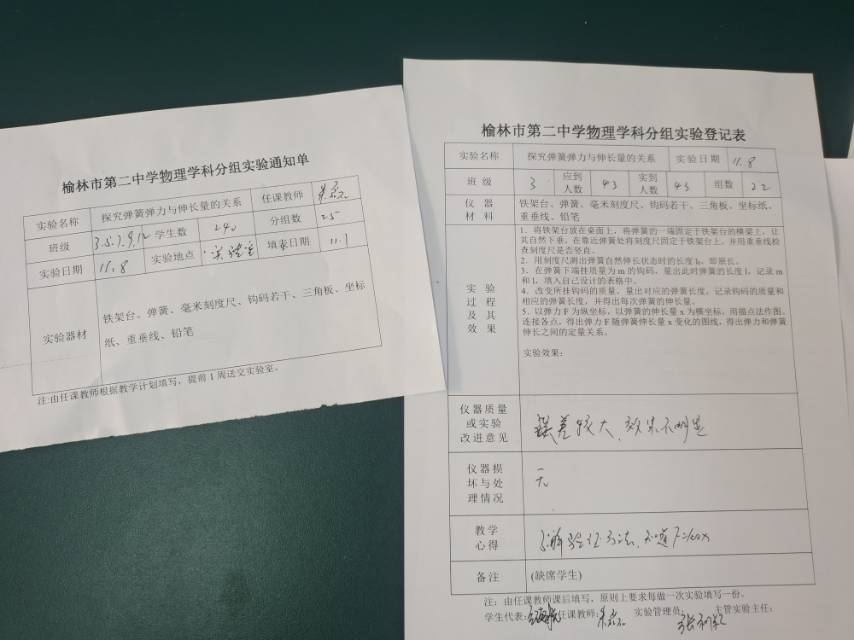 榆林市第二中学物理学科分组实验通知单
实验名称 探究弹簧弹力与伸长量的关系 任课教师
班级 3.5.7.9.12 学生数 240 分组数 25
实验日期 11.8 实验地点 实验室 填表日期 11.1
实验器材 铁架台、弹簧、毫米刻度尺、钩码若干、三角板、坐标
纸、重垂线、铅笔
注:由任课教师根据教学计划填写,提前1周送交实验室。
榆林市第二中学物理学科分组实验登记表
实验名称 探究弹簧弹力与伸长量的关系 实验日期 11.8
班级 3 应到人数 43 实到人数 43 组数 22
仪器材料 铁架台、弹簧、毫米刻度尺、钩码若干、三角板、坐标纸、
重垂线、铅笔
实验过程及其效果
1．将铁架台放在桌面上，将弹簧的一端固定于铁架台的横梁上，让
其自然下垂，在靠近弹簧处将刻度尺固定于铁架台上，并用重垂线检
查刻度尺是否竖直。
2．用刻度尺测出弹簧自然伸长状态时的长度l₀，即原长。
3．在弹簧下端挂质量为m的钩码，量出此时弹簧的长度l，记录m
和l，填入自己设计的表格中。
4．改变所挂钩码的质量，量出对应的弹簧长度，记录钩码的质量和
相应的弹簧长度，并得出每次弹簧的伸长量。
5．以弹力F为纵坐标，以弹簧的伸长量x为横坐标，用描点法作图。
连接各点，得出弹力F随弹簧伸长量x变化的图线，得出弹力和弹簧
伸长之间的定量关系。
实验效果：
仪器质量或实验改进意见 误差较大，效果不明显
仪器损坏与处理情况 无
教学心得
备注 (缺席学生)
注：由任课教师课后填写，原则上要求每做一次实验填写一份。
学生代表: 任课教师: 实验管理员: 主管实验主任: